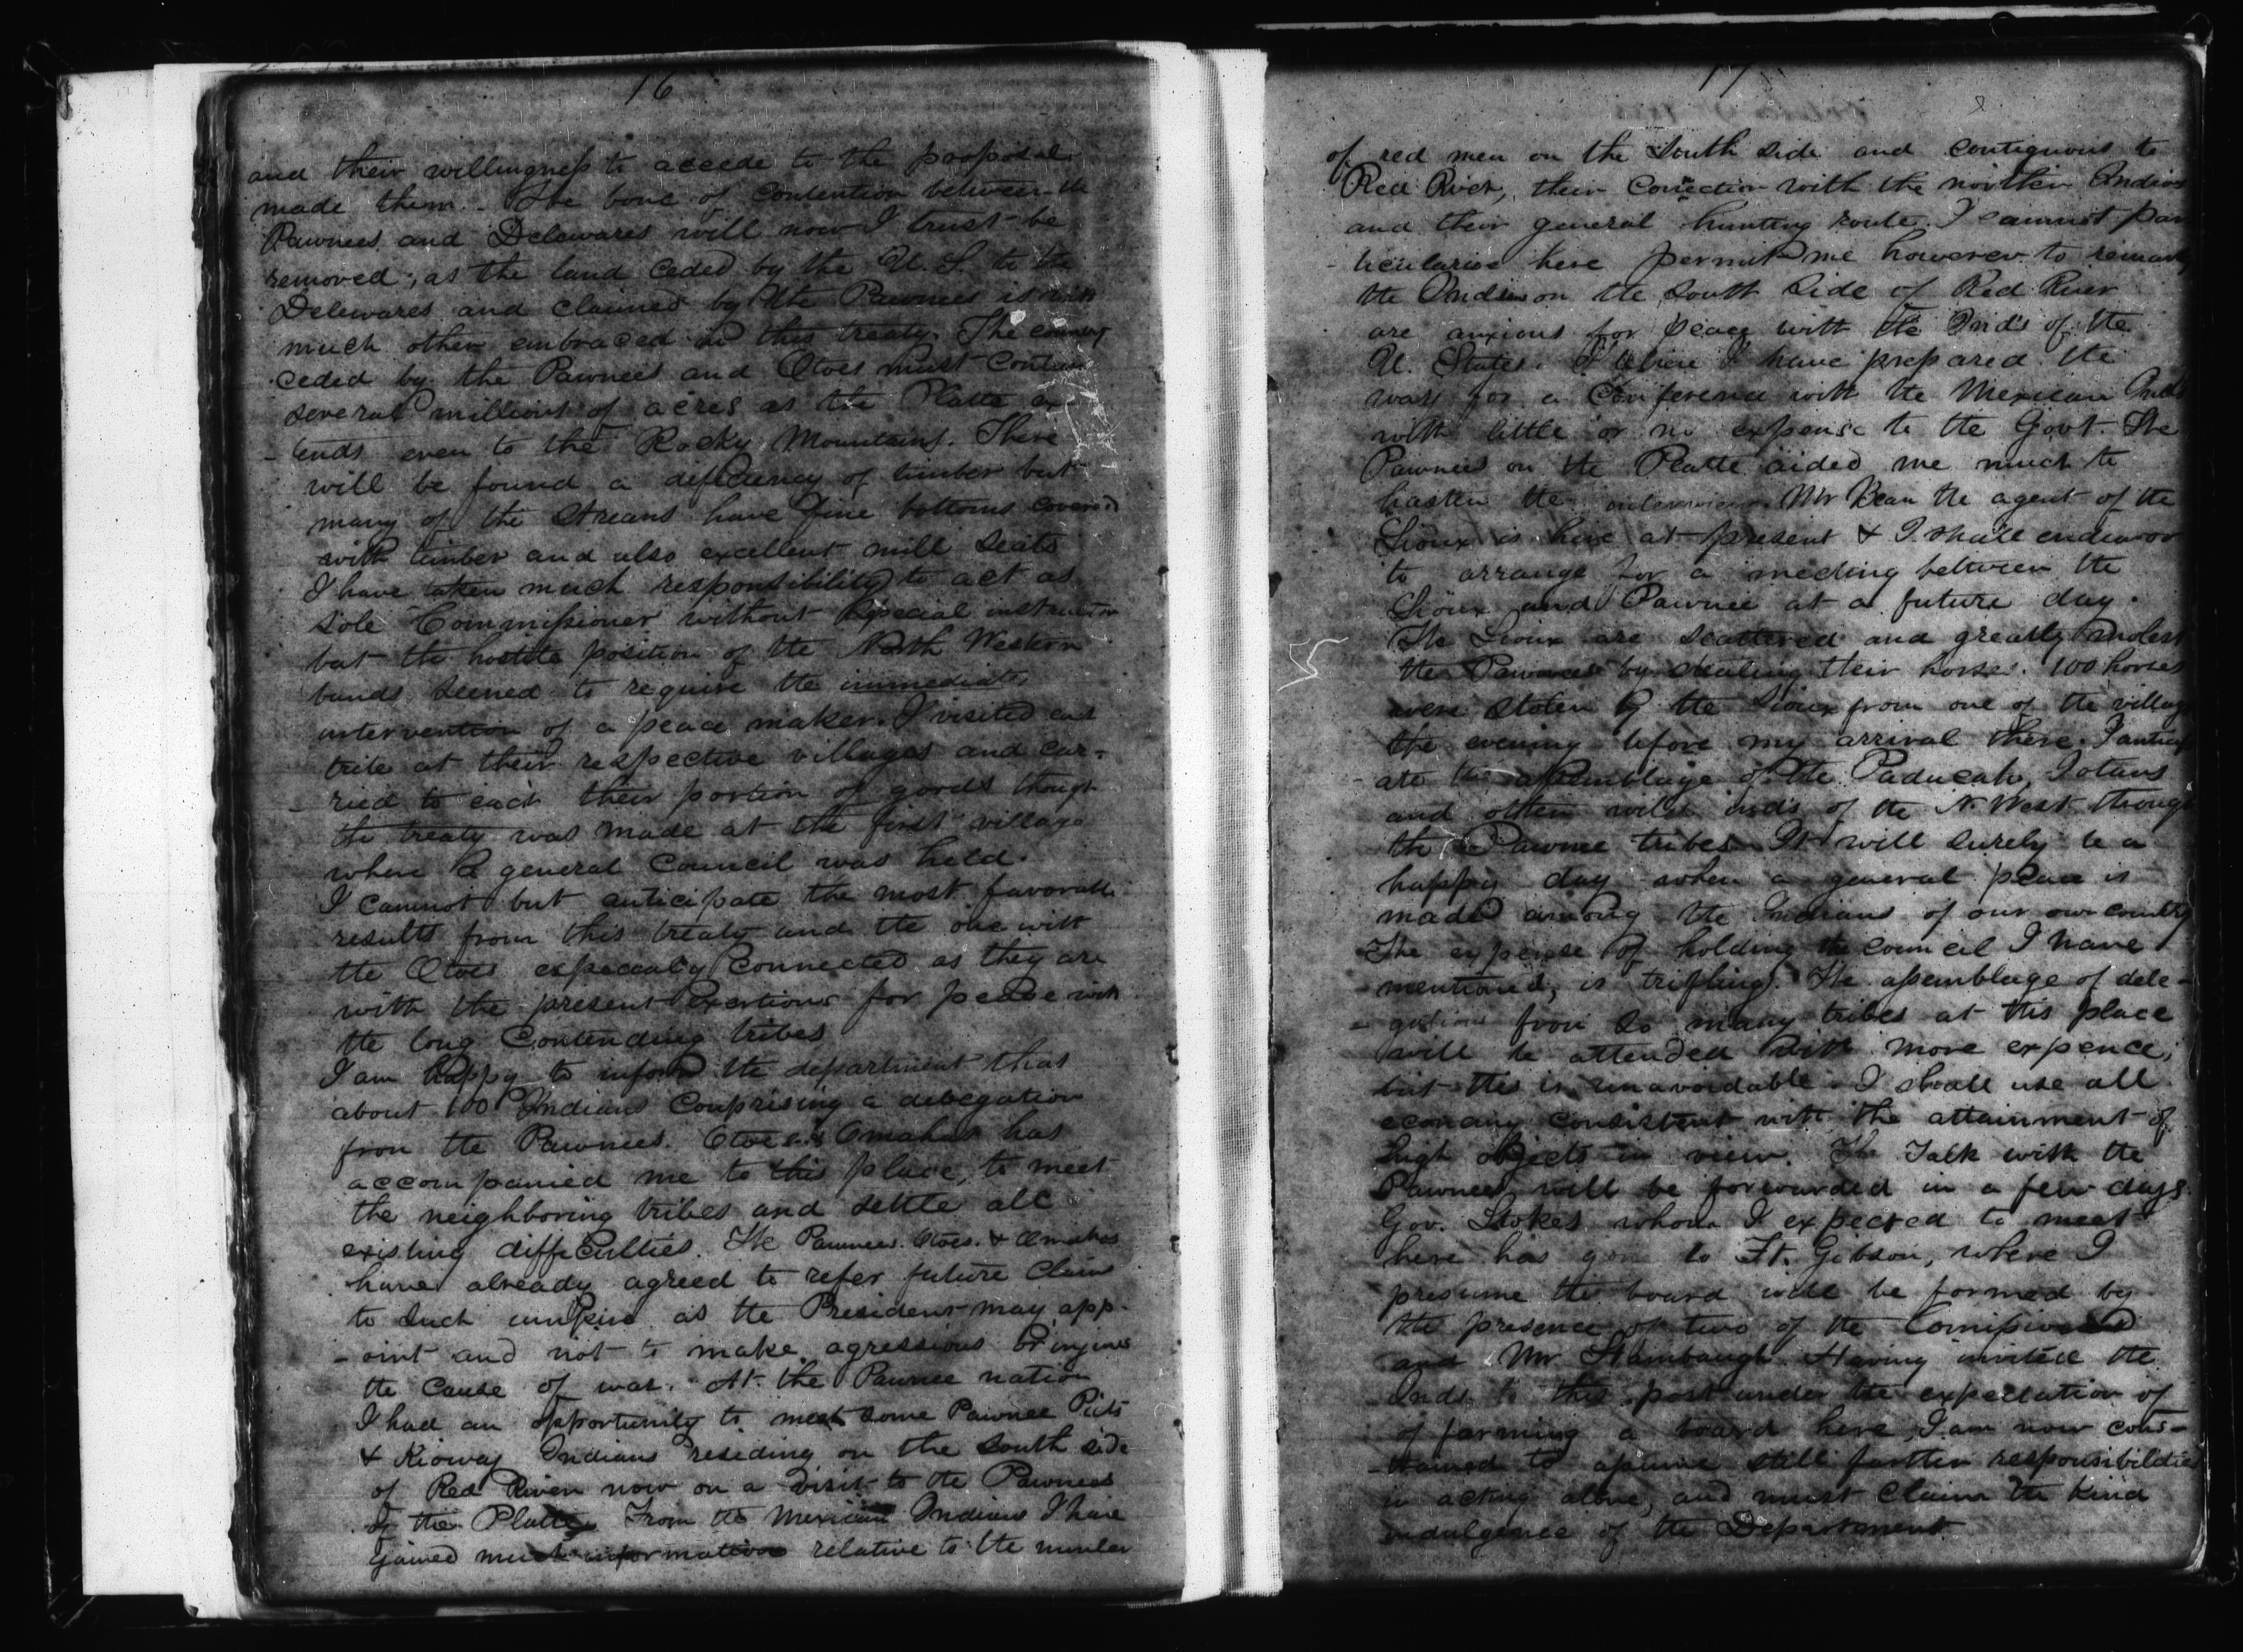 16
and their willingness to accede to the proposals
made them. The bone of contention between the
Pawnees and Delawares will now I trust be
removed; as the land ceded by the U. S. to the
Delewares and claimed by the Pawnees is with
much other embraced in this treaty. The country
ceded by the Pawnees and Otoes must contain
several millions of acres as the Platte ex
-tends even to the Rocky Mountains. There
will be found a deficiency of timber but
many of the streams have fine bottoms covered
with timber and also excellent mill seats
I have taken much responsibility to act as
sole Commissioner without special instruction
but the hostile position of the North Western
bands seemed to require the immediate
intervention of a peace maker. I visited each
tribe at their respective villages and car-
-ried to each their portion of goods though
the treaty was made at the first village
where a general Council was held.
I cannot but anticipate the most favorable
results from this treaty and the one with
the Otoes especially connected as they are
with the present exertions for peace with
the long Contending tribes
I am happy to inform the department that
about 100 Indians Comprising a delegation
from the Pawnees. Otoes & Omahas has
accompanied me to this place, to meet
the neighboring tribes and settle all
existing difficulties. The Pawnees. Otoes. & Omahas
have already agreed to refer future Claims
to such umpire as the President may app-
-oint and not to make agressions or injuries
the cause of war. At the Pawnee nation
I had an opportunity to meet some Pawnee Picts
& Kioway Indians residing on the South side
of Red River now on a visit to the Pawnees
of the Platte. From the Mexican Indians I have
gained much information relative to the number
17
of red men on the South side and contiguous to
Red River, their Conection with the northern Indians
and their general hunting route. I cannot par
-ticularise here permit me however to remark
the Indians on the South Side of Red River
are anxious for peace with the Ind's of the
U. States. I believe I have prepared the
way for a Conference with the Mexican Ind's
with little or no expense to the Govt. The
Pawnees on the Platte aided me much to
hasten the interview. Mr Bean the agent of the
Sioux is here at present & I shall endeavor
to arrange for a meeting between the
Sioux and Pawnee at a future day.
The Sioux are scattered and greatly molest
the Pawnees by stealing their horses. 100 horses
were stolen by the Sioux from one of the villages
the evening before my arrival there. I anticip
-ate the assemblage of the Paducah, Iotans
and other wild ind's of the N. West through
the Pawnee tribes. It will surely be a
happy day when a general peace is
made among the Indians of our own country
The expense of holding the council I have
mentioned, is trifling. The assemblage of dele-
-gations from so many tribes at this place
will be attended with more expence,
but this is unavoidable. I shall use all
economy consistent with the attainment of
high objects in view. The Talk with the
Pawnees will be forwarded in a few days.
Gov. Stokes whom I expected to meet
here has gone to Ft. Gibson, where I
presume the board will be formed by
the presence of two of the
and Mr Stambaugh. Having invited the
Inds to this post under the expectation of
of forming a board here, I am now cons-
-trained to assume still further responsibilities
in acting alone, and must claim the kind
indulgence of the Department